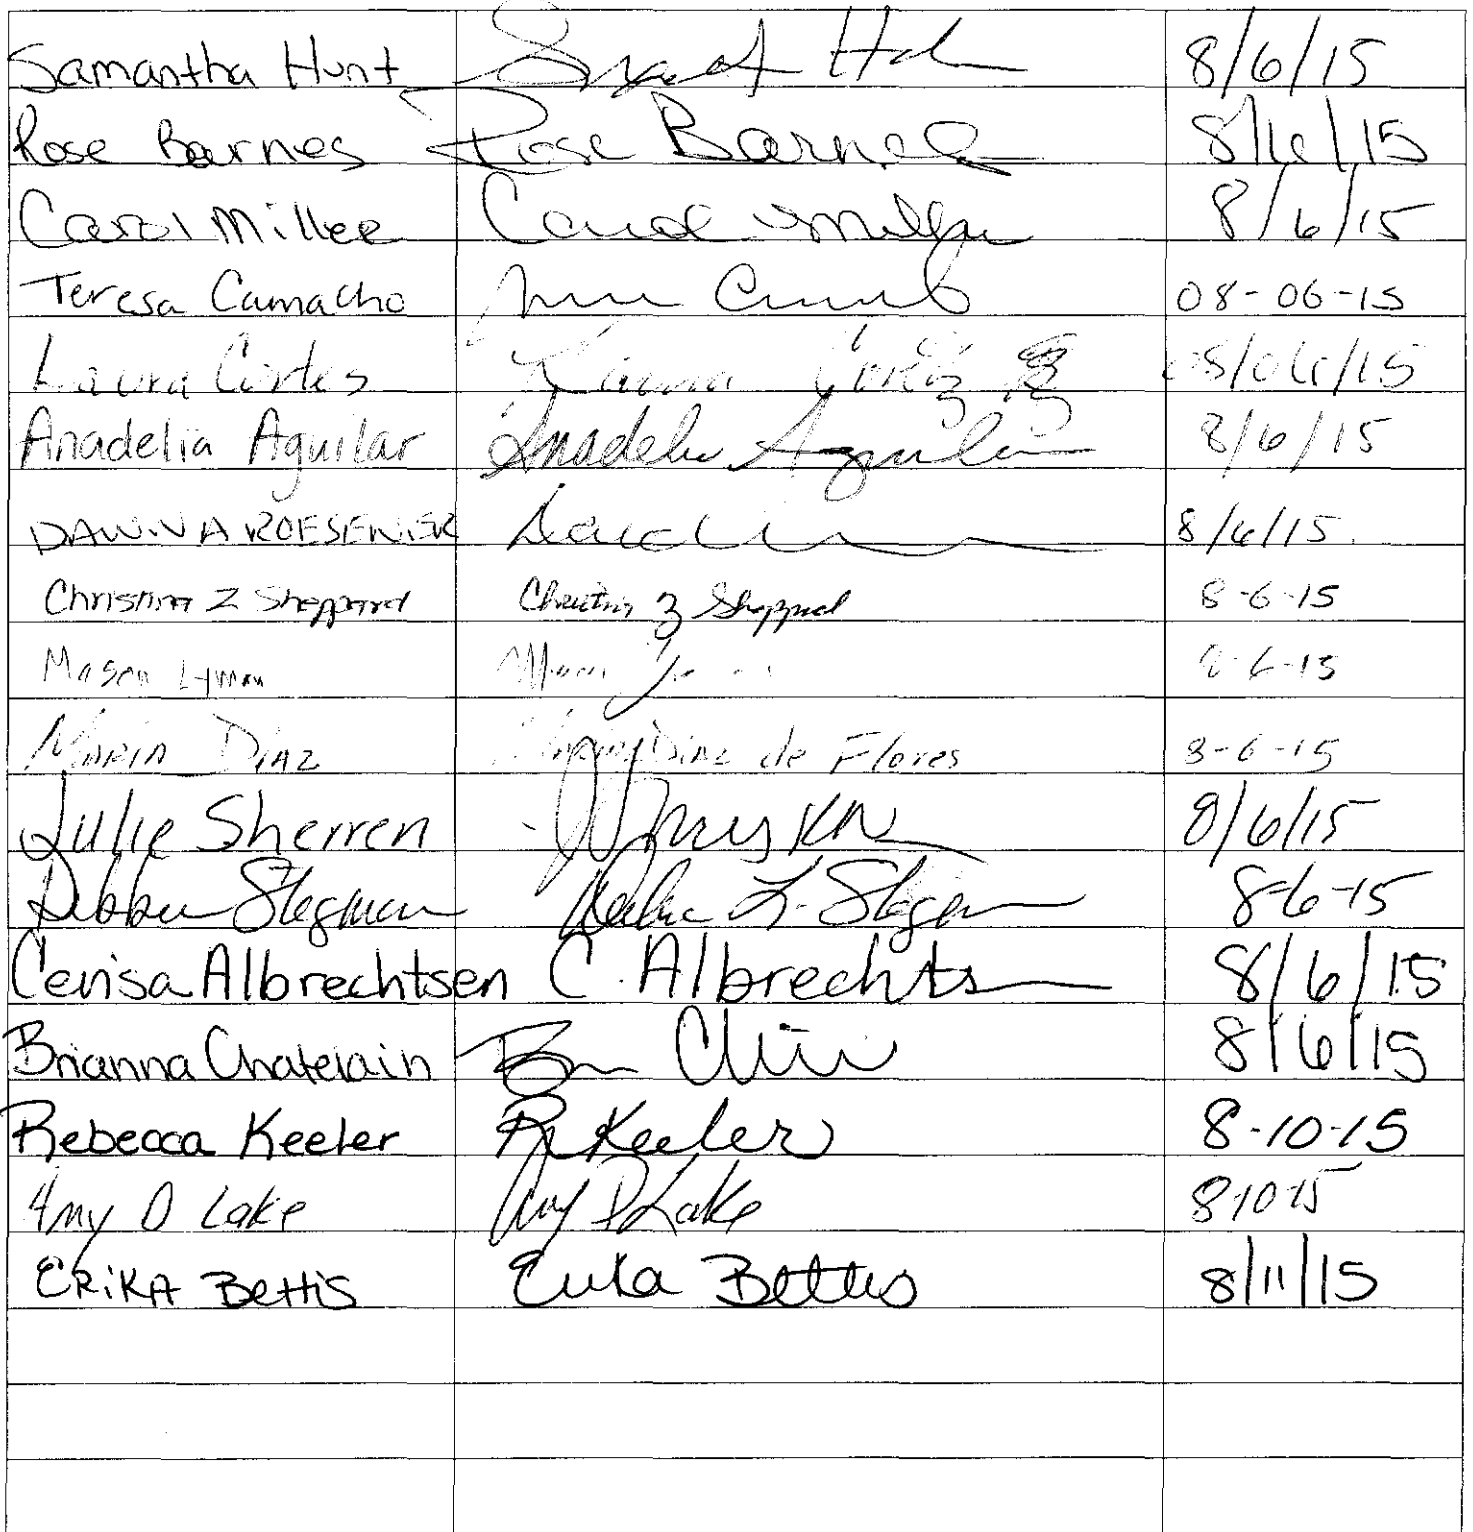 Samantha Hunt 8/6/15
Rose Barnes Rose Barnes 8/6/15
Carol Miller Carol Miller 8/6/15
Teresa Camacho 08-06-15
Laura Cortes Laura 08/06/15
Anadelia Aguilar Anadelia Aguilar 8/6/15
DAWNA ROESENER 8/6/15
Christina Z Sheppard Christina Z Sheppard 8-6-15
Mason Lyman Mason 8-6-15
MARIA DIAZ Maria Diaz de Flores 8-6-15
Julie Sherren 8/6/15
Debbie Stegman Debbie L. Stegman 8-6-15
Cerisa Albrechtsen C. Albrechts 8/6/15
Brianna Chatelain 8/6/15
Rebecca Keeler R Keeler 8-10-15
Amy D Lake Amy D Lake 8-10-15
ERiKA BettiS Erika Bettis 8/11/15